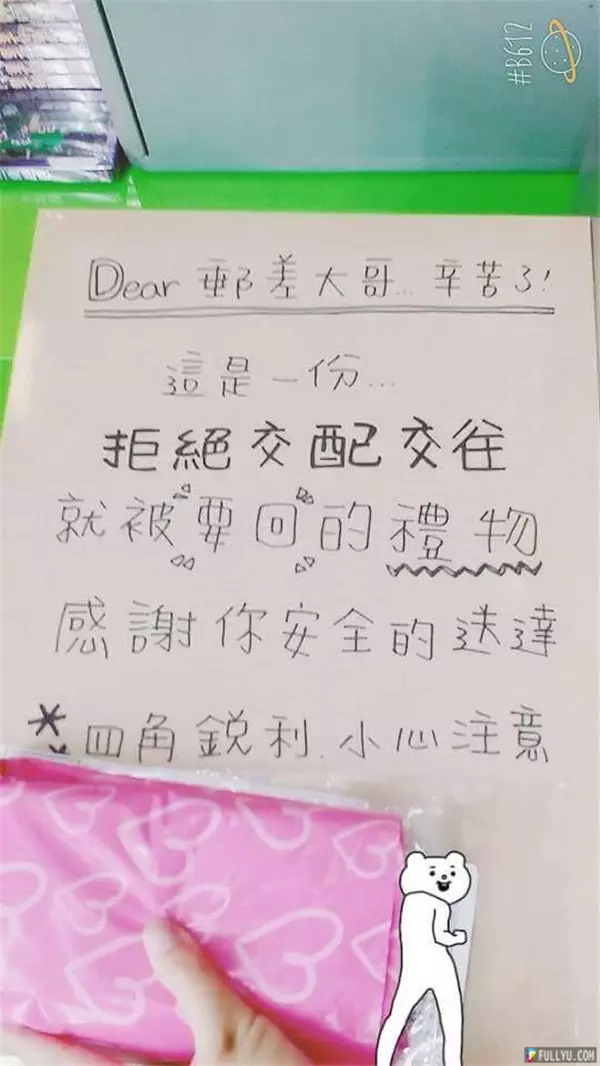 #B612
Dear 郵差大哥... 辛苦了!
這是一份...
拒絕交配交往
就被要回的禮物
感謝你安全的送達
* 四角銳利.小心注意
*
FULLYU.COM